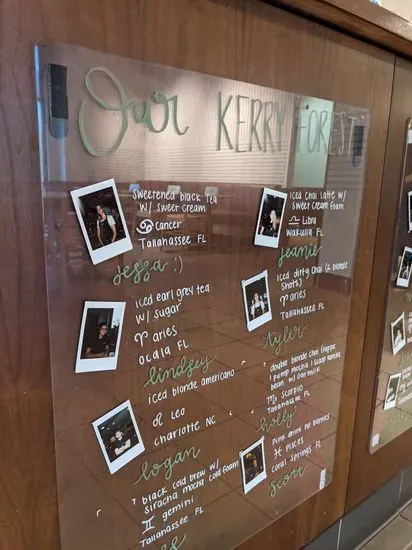 Our KERRY FOREST
Sweetened black Tea
w/ sweet cream
♋ Cancer
Tallahassee FL
Jessa :)
iced earl grey tea
w/ sugar
♈ aries
ocala FL
lindsey
iced blonde americano
♌ Leo
charlotte NC
logan
black cold brew w/
siracha mocha cold foam
♊ gemini
Tallahassee FL
iced Chai Latte w/
sweet cream foam
♎ Libra
Wakulla FL
jeanie
iced dirty chai (2 blonde
shots)
♈ aries
Tallahassee FL
tyler
double blonde chai frappe
1 pump mocha 1 scoop vanilla
bean w/ oat milk
♏ scorpio
Tallahassee FL
holly
Pink drink no berries
♓ Pisces
Coral Springs FL
scott